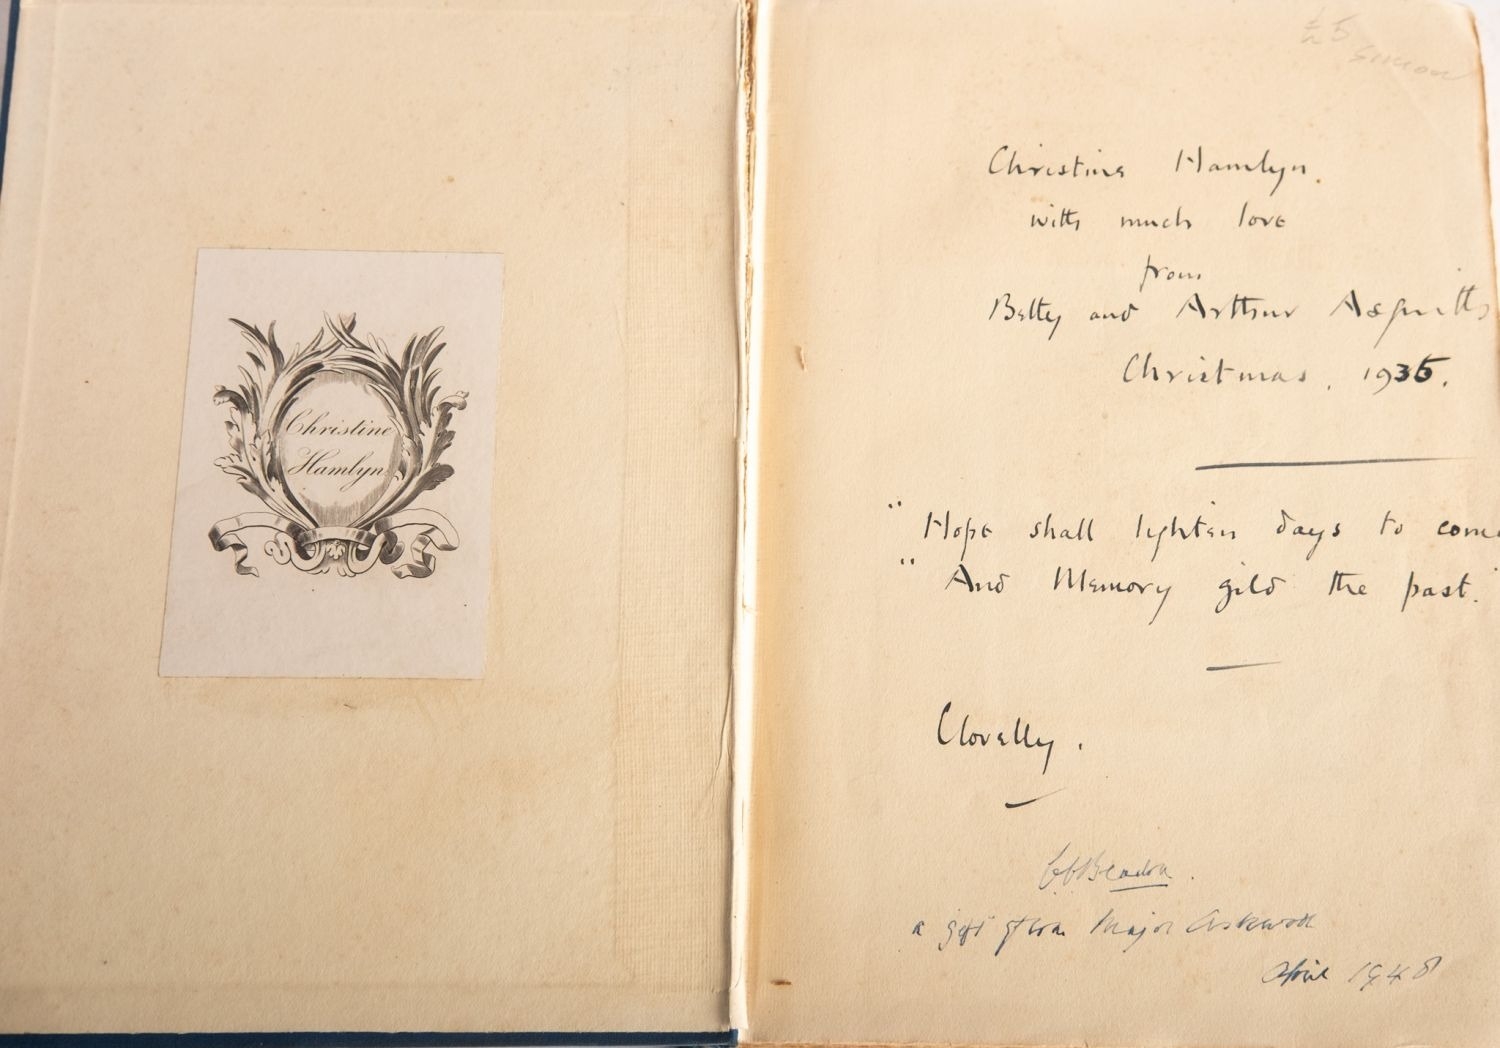 Christine
Hamlyn
£5
Christine Hamlyn.
with much love
from
Betty and Arthur Asquith
Christmas. 1935.
"Hope shall lighten days to come
"And Memory gild the past."
Clovelly.
Beadon.
a gift from Major Askwith
April 1948